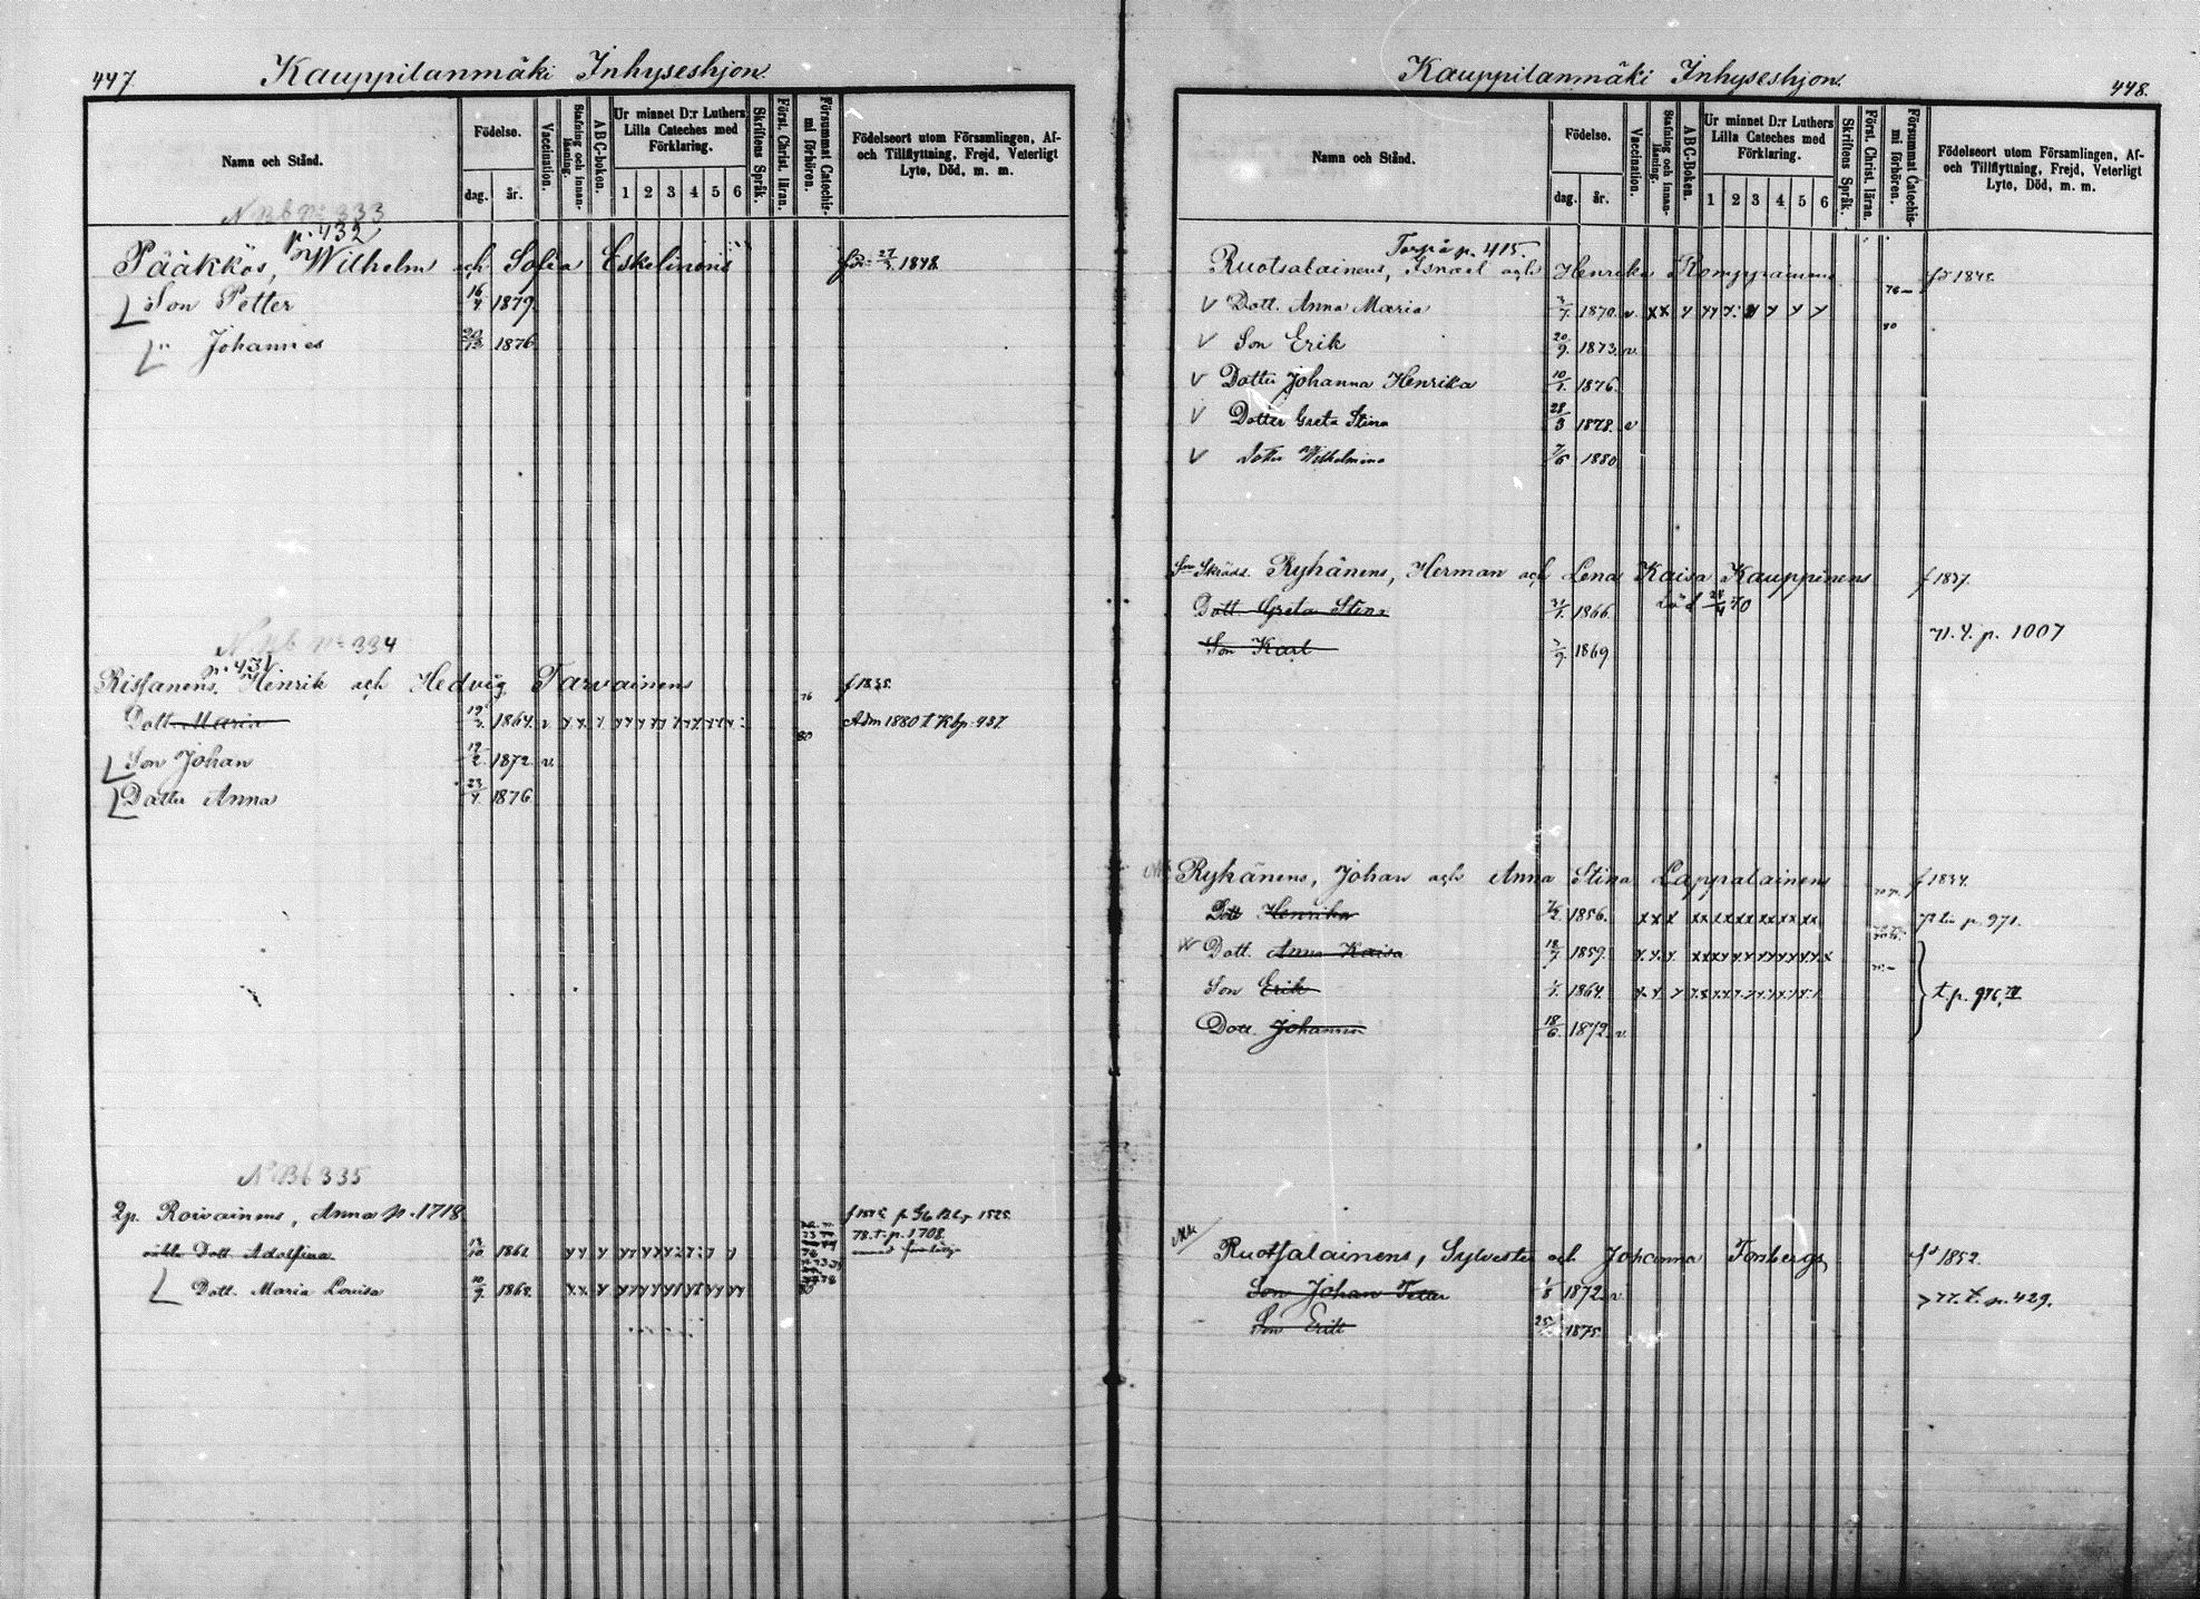 447.
Kauppilanmäki Inhyseshjon.
Namn och Stånd.
Födelse.
dag. år.
Vaccination.
Stafning och innanläsning.
ABC-boken.
Ur minnet D:r Luthers Lilla Cateches med Förklaring.
1 2 3 4 5 6
Skriftens Språk.
Först. Christ. läran.
Försummat Catechismi förhören.
Födelseort utom Församlingen, Af- och Tillflyttning, Frejd, Veterligt Lyte, Död, m. m.
N Bb No 333
p. 432
Pääkkös, Wilhelm och Sofia Eskelinens 1848.
Son Petter 16/4 1879.
" Johannes 1876.
334
p. 431.
Rissanens, Henrik och Hedvig Tarvainens f 1835.
Dott. Maria 1864. v 76 80 Adm 1880 t Kbp. 437.
Son Johan 19/2 1872. v.
Dotter Anna 23/4 1876
N Bb 335
Roivainens, Anna p. 1718.
78. t. p. 1708.
Dott Adolfina 1861
Dott. Maria Lovisa 10/9 1868.
Kauppilanmäki Inhyseshjon.
448.
Namn och Stånd.
Födelse.
dag. år.
Vaccination.
Stafning och innanläsning.
ABC-Boken.
Ur minnet D:r Luthers Lilla Cateches med Förklaring.
1 2 3 4 5 6
Skriftens Språk.
Först. Christ. läran.
Försummat Catechismi förhören.
Födelseort utom Församlingen, Af- och Tillflyttning, Frejd, Veterligt Lyte, Död, m. m.
Torp å p. 415.
Ruotsalainens, Israel och Henrika Komppainens
V Dott. Anna Maria 1870. v.
V Son Erik 20/9. 1873. v.
V Dotter Johanna Henrika 10/1. 1876.
V Dotter Greta Stina 28/3 1878. v
V Dotter Wilhelmina 7/6 1880
Ryhänens, Herman och Lena Kaisa Kauppinens f 1837.
Dott Greta Stina 1866. död
Son Karl 1869. p. 1007
Ryhänens, Johan och Anna Stina Lappalainens f 1834.
Dott Henrika 1856. p. 971.
Dott. Anna Kaisa 18/7 1859.
Son Erik 1864. t. p. 976
Dott. Johanna 18/6. 1872. v.
Ruotsalainens, Sylvester och Johanna Forsbergs 1852.
Son Johan Petter 1872. v 77. t. p. 429.
Son Erik 1875.